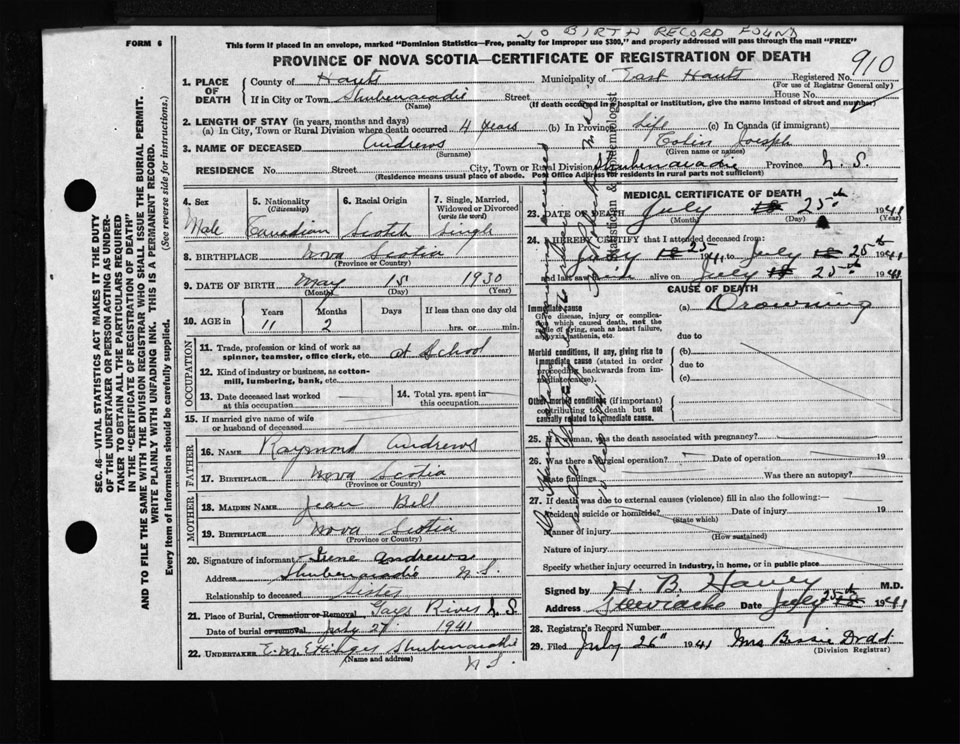 NO BIRTH RECORD FOUND
FORM 6
This form if placed in an envelope, marked "Dominion Statistics—Free, penalty for improper use $300," and properly addressed will pass through the mail "FREE"
PROVINCE OF NOVA SCOTIA—CERTIFICATE OF REGISTRATION OF DEATH
910
1. PLACE OF DEATH
County of Hants Municipality of East Hants Registered No.
(For use of Registrar General only)
If in City or Town Shubenacadie Street House No.
(Name) (If death occurred in a hospital or institution, give the name instead of street and number)
2. LENGTH OF STAY (in years, months and days)
(a) In City, Town or Rural Division where death occurred 4 years (b) In Province Life (c) In Canada (if immigrant)
3. NAME OF DECEASED Andrews Colin Joseph
(Surname) (Given name or names)
RESIDENCE No. Street City, Town or Rural Division Shubenacadie Province N. S.
(Residence means usual place of abode. Post Office Address for residents in rural parts not sufficient)
4. Sex
Male
5. Nationality
(Citizenship)
Canadian
6. Racial Origin
Scotch
7. Single, Married, Widowed or Divorced
(write the word)
Single
8. BIRTHPLACE Nova Scotia
(Province or Country)
9. DATE OF BIRTH May 15 1930
(Month) (Day) (Year)
10. AGE in Years Months Days If less than one day old
11 2 hrs. or min.
OCCUPATION
11. Trade, profession or kind of work as spinner, teamster, office clerk, etc. at School
12. Kind of industry or business, as cotton-mill, lumbering, bank, etc.
13. Date deceased last worked at this occupation
14. Total yrs. spent in this occupation
15. If married give name of wife or husband of deceased
FATHER
16. NAME Raymond Andrews
17. BIRTHPLACE Nova Scotia
(Province or Country)
MOTHER
18. MAIDEN NAME Jean Bell
19. BIRTHPLACE Nova Scotia
(Province or Country)
20. Signature of informant Irene Andrews
Address Shubenacadie N. S.
Relationship to deceased Sister
21. Place of Burial, Cremation or Removal Gays River N. S.
Date of burial or removal July 27 1941
22. UNDERTAKER E. M. Ettinger Shubenacadie
(Name and address) N. S.
MEDICAL CERTIFICATE OF DEATH
23. DATE OF DEATH July 25th 1941
(Month) (Day) (Year)
24. I HEREBY CERTIFY that I attended deceased from:
July 25 1941 to July 25th 1941
and last saw him alive on July 25th 1941
CAUSE OF DEATH
Immediate cause
Give disease, injury or complication which caused death, not the mode of dying, such as heart failure, asphyxia, asthenia, etc.
(a) Drowning
due to
Morbid conditions, if any, giving rise to immediate cause (stated in order proceeding backwards from immediate cause).
(b)
due to
(c)
Other morbid conditions (if important) contributing to death but not causally related to immediate cause.
25. If a woman, was the death associated with pregnancy?
26. Was there a surgical operation? Date of operation 19
State findings Was there an autopsy?
27. If death was due to external causes (violence) fill in also the following:—
Accident, suicide or homicide? Date of injury 19
(State which)
Manner of injury
(How sustained)
Nature of injury
Specify whether injury occurred in industry, in home, or in public place
Signed by H. B. Havey M.D.
Address Stewiacke Date July 25th 1941
28. Registrar's Record Number
29. Filed July 26th 1941 Mrs Bessie Dodd
(Division Registrar)
Statistician & Epidemiologist
SEC. 46—VITAL STATISTICS ACT MAKES IT THE DUTY
OF THE UNDERTAKER OR PERSON ACTING AS UNDER-
TAKER TO OBTAIN ALL THE PARTICULARS REQUIRED
IN THE "CERTIFICATE OF REGISTRATION OF DEATH"
AND TO FILE THE SAME WITH THE DIVISION REGISTRAR WHO SHALL ISSUE THE BURIAL PERMIT.
WRITE PLAINLY WITH UNFADING INK. THIS IS A PERMANENT RECORD.
Every item of information should be carefully supplied. (See reverse side for instructions.)